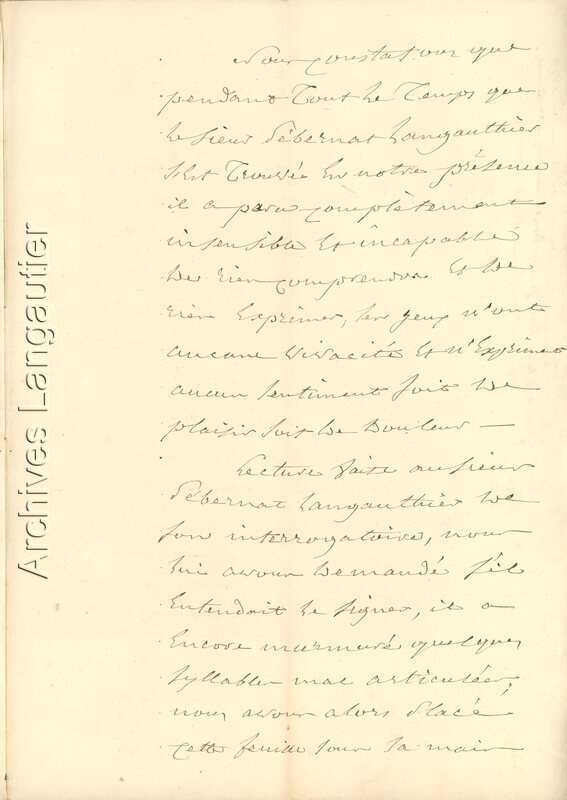 Nous constatons que
pendant Tout le Temps que
le sieur Débernat Langauthier
s'Est Trouvée En notre présence
il a paru complètement
insensible Et incapable
De rien comprendre Et De
rien Exprimer, les yeux n'ont
aucune vivacité Et n'Expriment
aucun sentiment soit De
plaisir soit De Douleur —
Lecture faite au sieur
Débernat Langauthier De
son interrogatoire, nous
lui avons Demandé s'il
Entendait le signer, il a
Encore murmuré quelques
syllabes mal articulées,
nous avons alors placé
cette feuille sous sa main
Archives Langautier